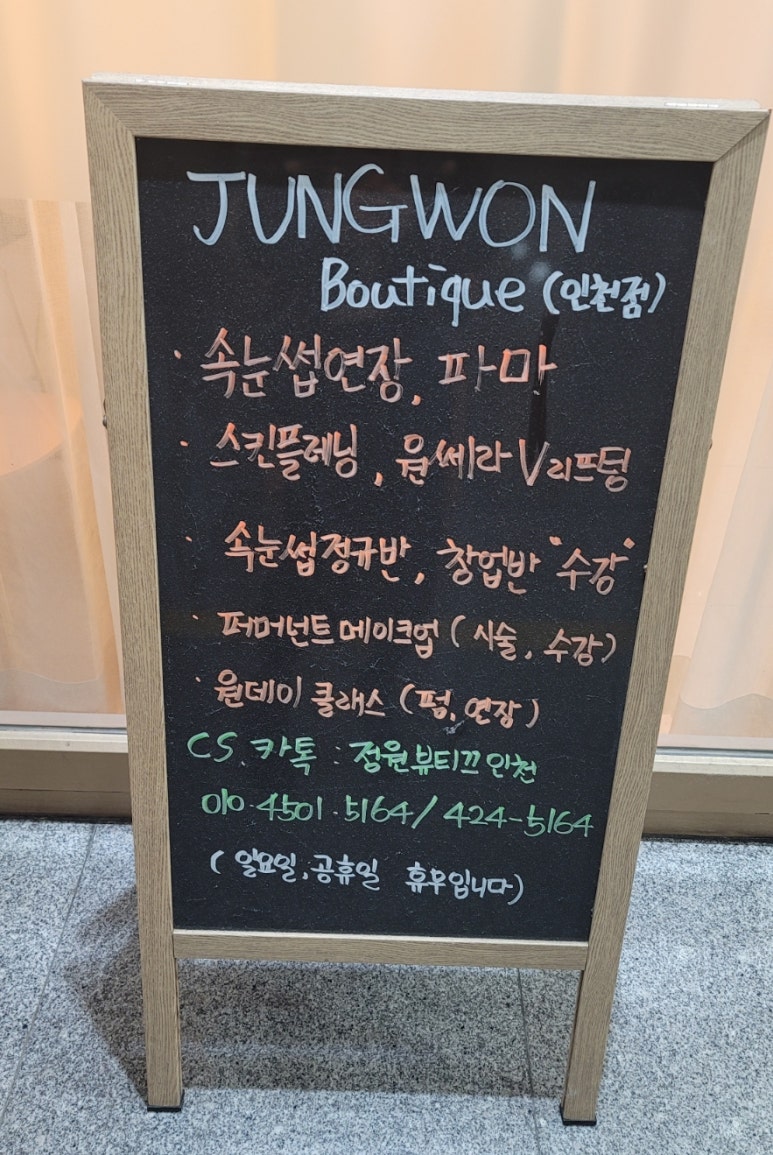 JUNGWON
Boutique (인천점)
· 속눈썹연장, 파마
· 스킨플레닝, 윤쎄라 V리프팅
· 속눈썹정규반, 창업반 "수강"
· 퍼머넌트메이크업 (시술, 수강)
· 원데이 클래스 (펌, 연장)
CS. 카톡 : 정원뷰티끄인천
010.4501.5164 / 424-5164
(일요일, 공휴일 휴무입니다)